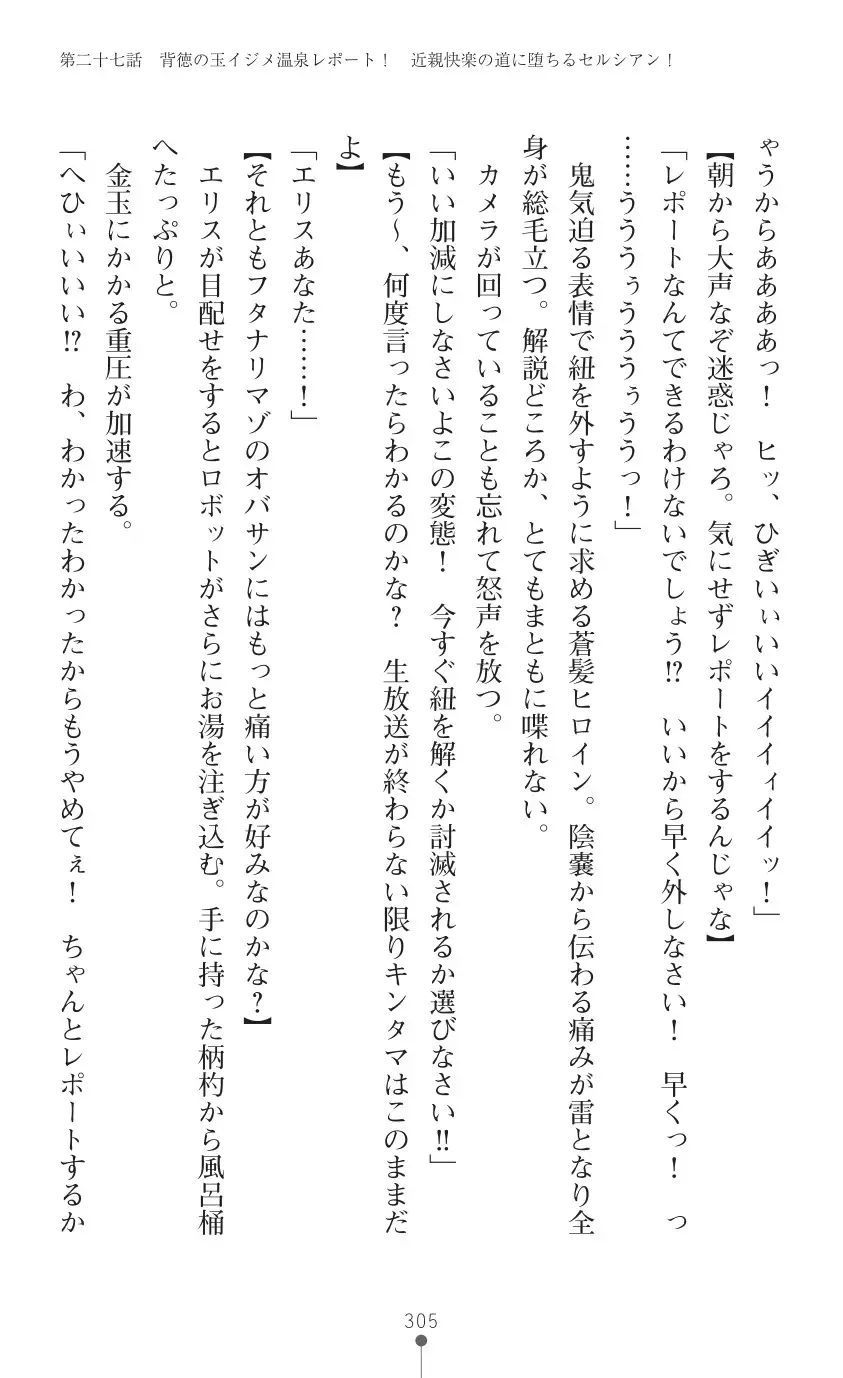 第二十七話　背徳の玉イジメ温泉レポート！　近親快楽の道に堕ちるセルシアン！
ゃうからああああっ！　ヒッ、ひぎいぃいいイイイィイイッ！」
【朝から大声なぞ迷惑じゃろ。気にせずレポートをするんじゃな】
「レポートなんてできるわけないでしょう!?　いいから早く外しなさい！　早くっ！　っ
……うううぅうううぅううっ！」
　鬼気迫る表情で紐を外すように求める蒼髪ヒロイン。陰嚢から伝わる痛みが雷となり全
身が総毛立つ。解説どころか、とてもまともに喋れない。
　カメラが回っていることも忘れて怒声を放つ。
「いい加減にしなさいよこの変態！　今すぐ紐を解くか討滅されるか選びなさい!!」
【もう～、何度言ったらわかるのかな？　生放送が終わらない限りキンタマはこのままだ
よ】
「エリスあなた……！」
【それともフタナリマゾのオバサンにはもっと痛い方が好みなのかな？】
　エリスが目配せをするとロボットがさらにお湯を注ぎ込む。手に持った柄杓から風呂桶
へたっぷりと。
　金玉にかかる重圧が加速する。
「へひぃいいい!?　わ、わかったわかったからもうやめてぇ！　ちゃんとレポートするか
305